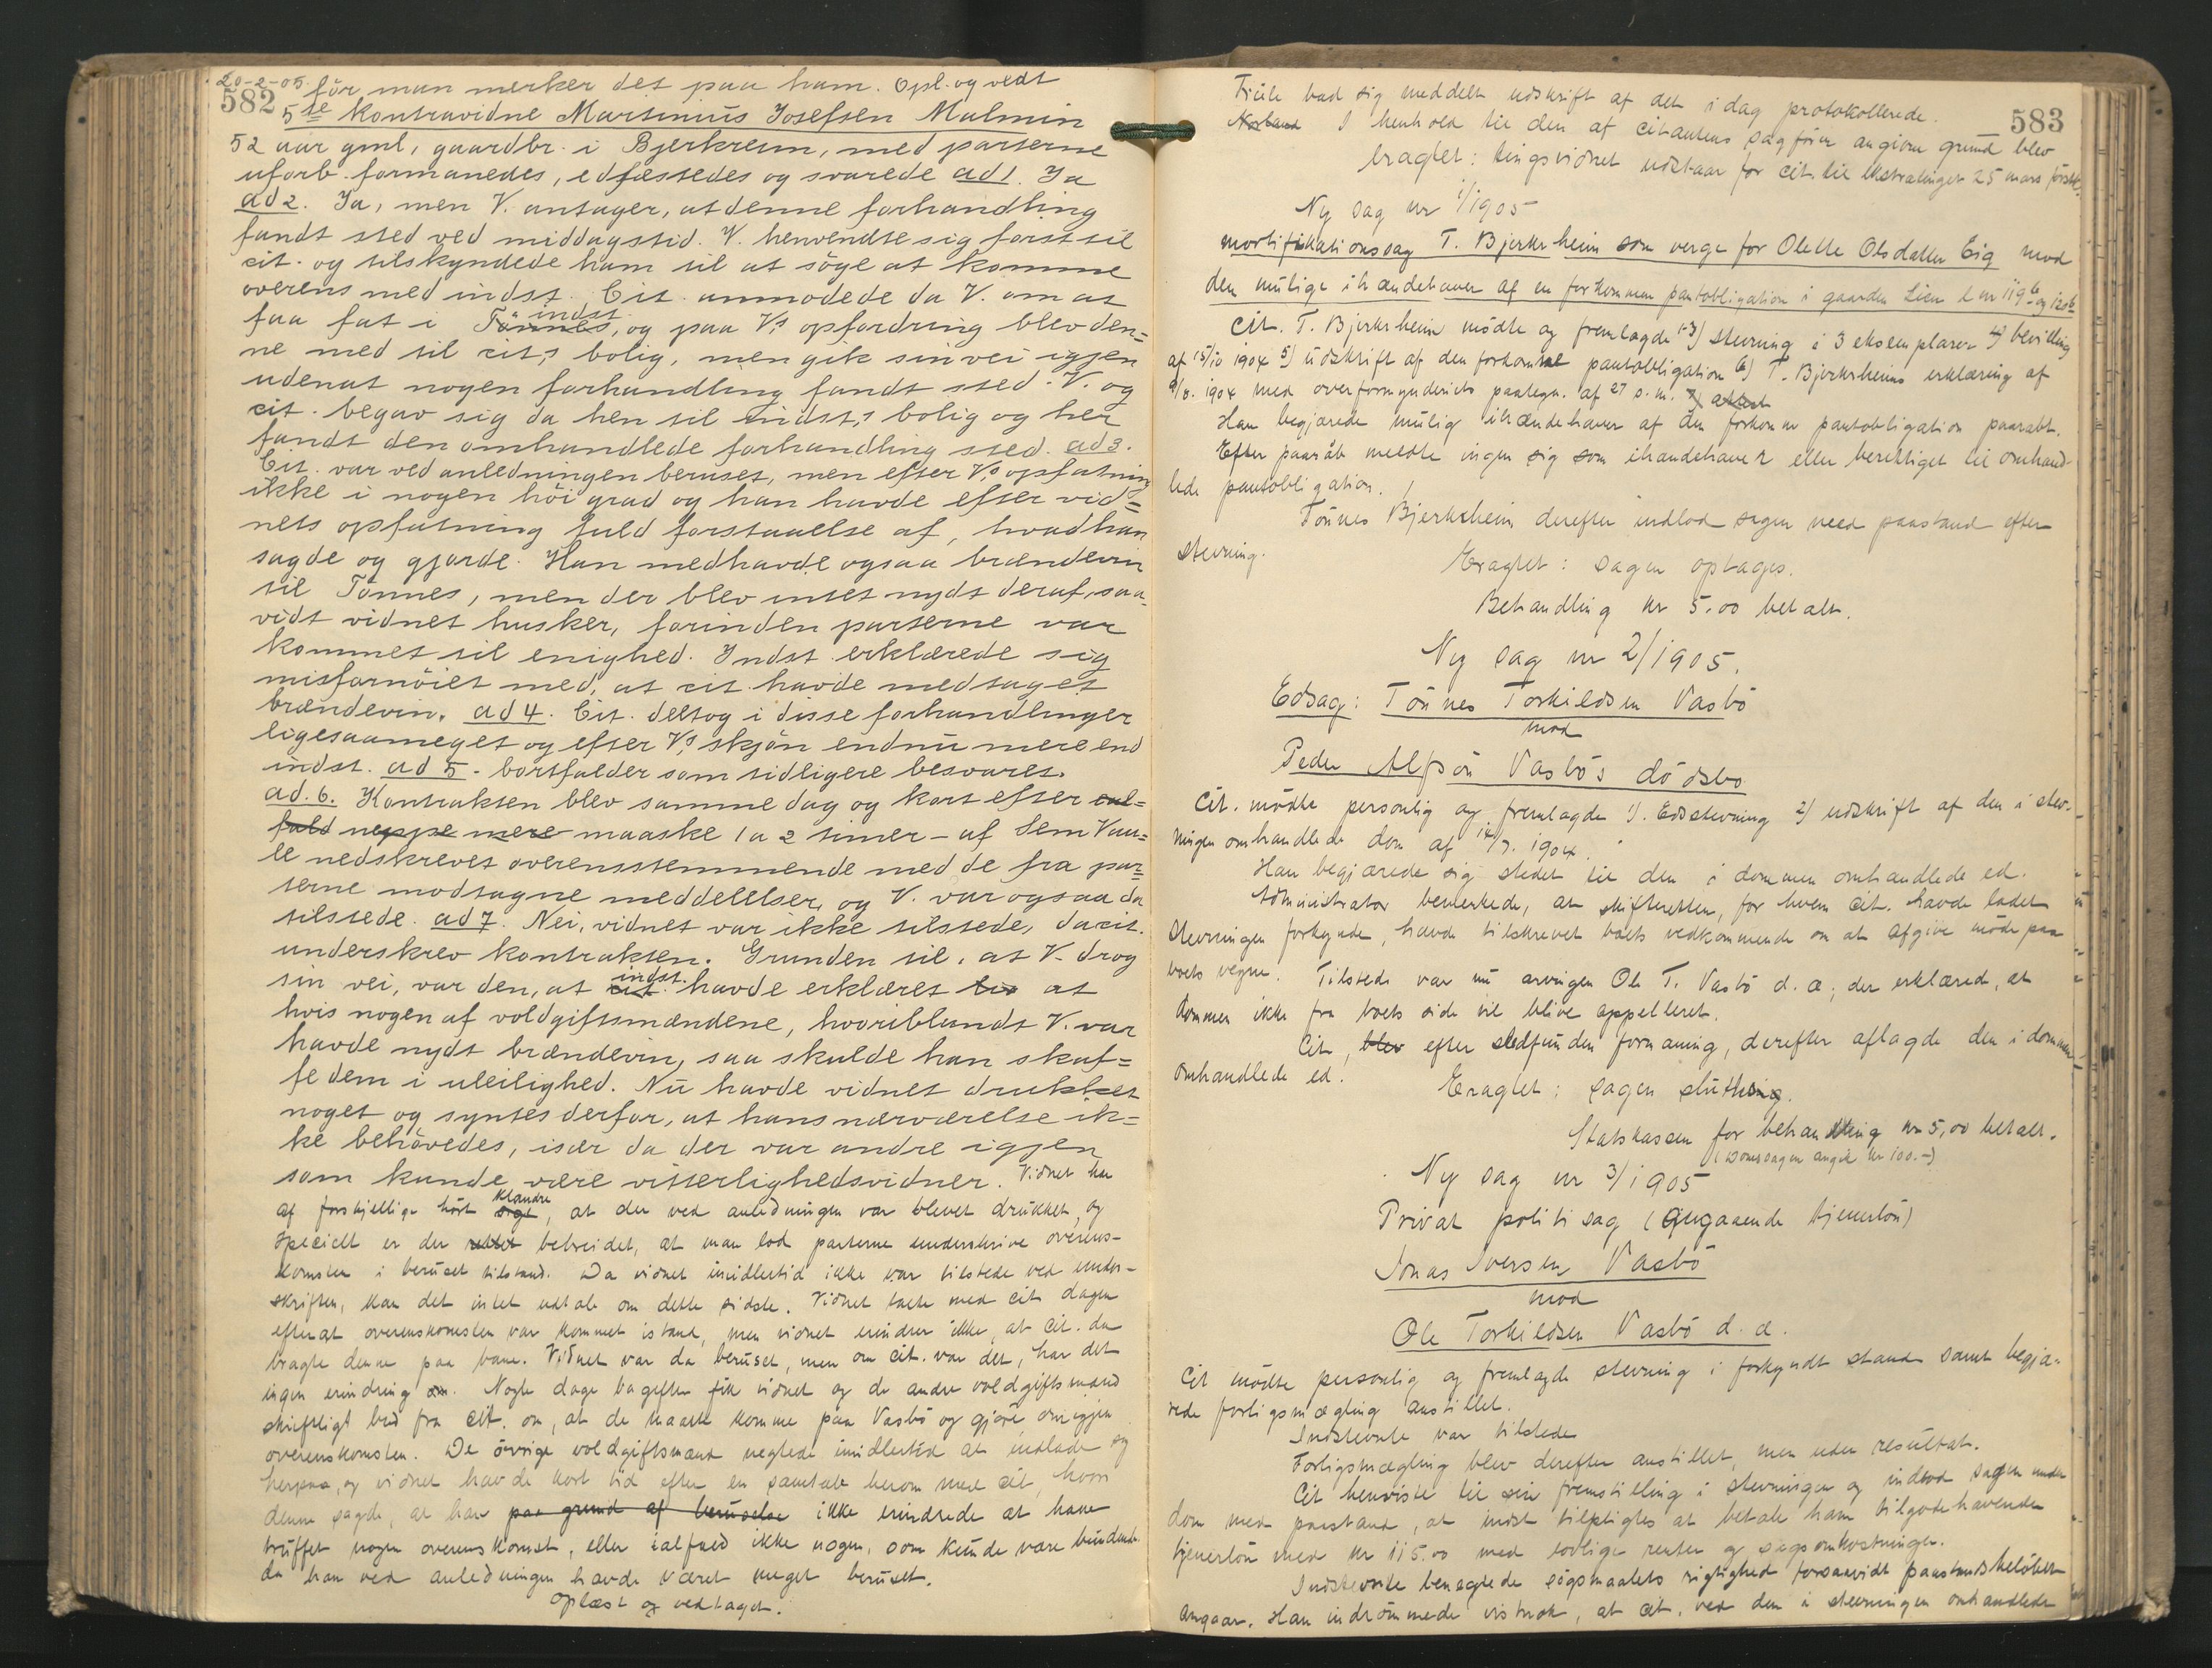 20-2-05
582
før man merker det paa ham. Opl. og vedt
5te kontravidne Martinius Josefsen Malmin
52 aar gml, gaardbr. i Bjerkreim, med parterne
uforb. formanedes, edfæstedes og svarede ad 1. Ja
ad 2. Ja, men V. antager, at denne forhandling
fandt sted ved middagstid. V. henvendte sig først til
cit. og tilskyndede ham til at söge at komme
overens med indst. Cit. anmodede da V. om at
faa fat i Tönnes, indst. og paa V.s opfordring blev den=
ne med til cit.s bolig, men gik sin vei igjen
uden at nogen forhandling fandt sted. V. og
cit. begav sig da hen til indst.s bolig og her
fandt den omhandlede forhandling sted. ad 3.
Cit. var ved anledningen beruset, men efter V.s opfatning
ikke i nogen höi grad og han havde efter vid=
nets opfatning fuld forstaaelse af, hvad han
sagde og gjorde. Han medhavde ogsaa brændevin
til Tönnes, men der blev intet nydt deraf, saa=
vidt vidnet husker, forinden parterne var
kommet til enighed. Indst. erklærede sig
misfornöiet med, at cit. havde medtaget
brændevin. ad 4. Cit. deltog i disse forhandlinger
ligesaameget og efter V.s skjön endnu mere end
indst. ad 5. bortfalder som tidligere besvaret.
ad. 6. Kontrakten blev samme dag og kort efter cal=
fald neppe mere maaske 1 a 2 timer - af Sem Vau=
le nedskrevet overensstemmende med de fra par=
terne modtagne meddelelser, og V. var ogsaa da
tilstede. ad 7. Nei, vidnet var ikke tilstede, da cit.
underskrev kontrakten. Grunden til, at V. drog
sin vei, var den, at cit. indst. havde erklæret at
hvis nogen af voldgiftsmændene, hvoriblandt V. var
havde nydt brændevin, saa skulde han skaf=
fe dem i uleilighed. Nu havde vidnet drukket
noget og syntes derfor, at hans nærværelse ik=
ke behövedes, især da der var andre igjen
som kunde være vitterlighedsvidner. Vidnet har
af forskjellige hört sige klandre, at der ved anledningen var blevet drukket, og
specielt er der bebreidet, at man lod parterne underskrive overens-
komsten i beruset tilstand. Da vidnet imidlertid ikke var tilstede ved under-
skriften, kan det intet udtale om dette sidste. Vidnet talte med cit. dagen
efterat overenskomsten var kommet istand, men vidnet erindrer ikke, at cit. da
bragte denne paa bane. Vidnet var da beruset, men om cit. var det, har det
ingen erindring om. Nogle dage bagefter fik vidnet og de andre voldgiftsmænd
skriftligt bud fra cit. om, at de maatte komme paa Vasbö og gjöre om igjen
overenskomsten. De övrige voldgiftsmænd neglede imidlertid at indlade sig
herpaa, og vidnet havde kort tid efter en samtale herom med cit., hvor
denne sagde, at han paa grund af beruselse ikke erindrede at have
truffet nogen overenskomst, eller ialfald ikke nogen, som kunde være bindende
da han ved anledningen havde været meget beruset.
Oplæst og vedtaget.
583
bad sig meddelt udskrift af det i dag protokollerede.
I henhold til den af citantens sagförer angivne grund blev
eragtet: tingsvidnet udstaar for cit. til ekstratinget 25 mars förstk.
Ny sag nr 1/1905
mortifikationssag T. Bjerkrheim som verge for Olette Olsdatter Eig mod
den mulige ihændehaver af en forkommen pantobligation i gaarden Lien l nr 119 b og 120 b
Cit. T. Bjerkrheim mödte og fremlagde 1-3) stevning i 3 eksemplarer 4) bevilling
af 15/10 1904 5) udskrift af den forkomne pantobligation 6) T. Bjerkrheims erklæring af
1904 med overformynderiets paategn. af 27 s. m. 7) attest
Han begjærede mulig ihændehaver af den forkomne pantobligation paaraabt.
Efter paaraab meldte ingen sig som ihændehaver eller berettiget til omhand-
lede pantobligation.
Tönnes Bjerkrheim derefter indlod sagen med paastand efter
stevning.
Eragtet: Sagen optages.
Behandling kr 5.00 betalt.
Ny sag nr 2/1905.
Edsag: Tönnes Torkildsen Vasbö
mod
Peder Alfsön Vasbö's dödsbo
Cit. mödte personlig og fremlagde 1). Edsstevning 2) udskrift af den i stev-
ningen omhandlede dom af 14/7. 1904.
Han begjærede sig stedet til den i dommen omhandlede ed.
Administrator bemerkede, at skifteretten, for hvem cit. havde ladet
stevningen forkynde, havde tilskrevet boets vedkommende om at afgive möde paa
boets vegne. Tilstede var nu arvingen Ole T. Vasbö d. æ., der erklæred, at
dommen ikke fra boets side vil blive appelleret.
Cit., blev efter stedfunden formaning, derefter aflagde den i dommen
omhandlede ed.
Eragtet: sagen sluttning.
Statskassen for behandling kr 5,00 betalt.
(Domssagen angik kr 100.-)
Ny sag nr 3/1905
Privat politisag (angaaende tjenerlön)
Jonas Iversen Vasbö
mod
Ole Torkildsen Vasbö d. æ.
Cit mödte personlig og fremlagde stevning i forkyndt stand samt begjæ-
rede forligsmægling anstillet.
Indstevnte var tilstede
Forligsmægling blev derefter anstillet, men uden resultat.
Cit henviste til sin fremstilling i stevningen og indlod sagen under
dom med paastand, at indst tilpligtes at betale ham tilgodehavende
tjenerlön med kr 115.00 med lovlige renter og sagsomkostninger.
Indstevnte benegtede sögsmaalets rigtighed forsaavidt paastandsbelöbet
angaar. Han indrömmede vistnok, at cit. ved den i stevningen omhandlede